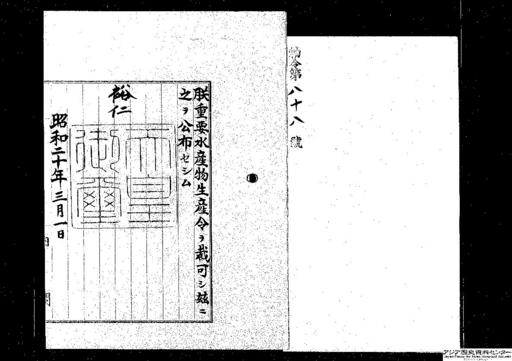 勅令第八十八號
朕重要水産物生産令ヲ裁可シ玆ニ
之ヲ公布セシム
裕仁
天皇御璽
昭和二十年三月一日
内閣
アジア歴史資料センター